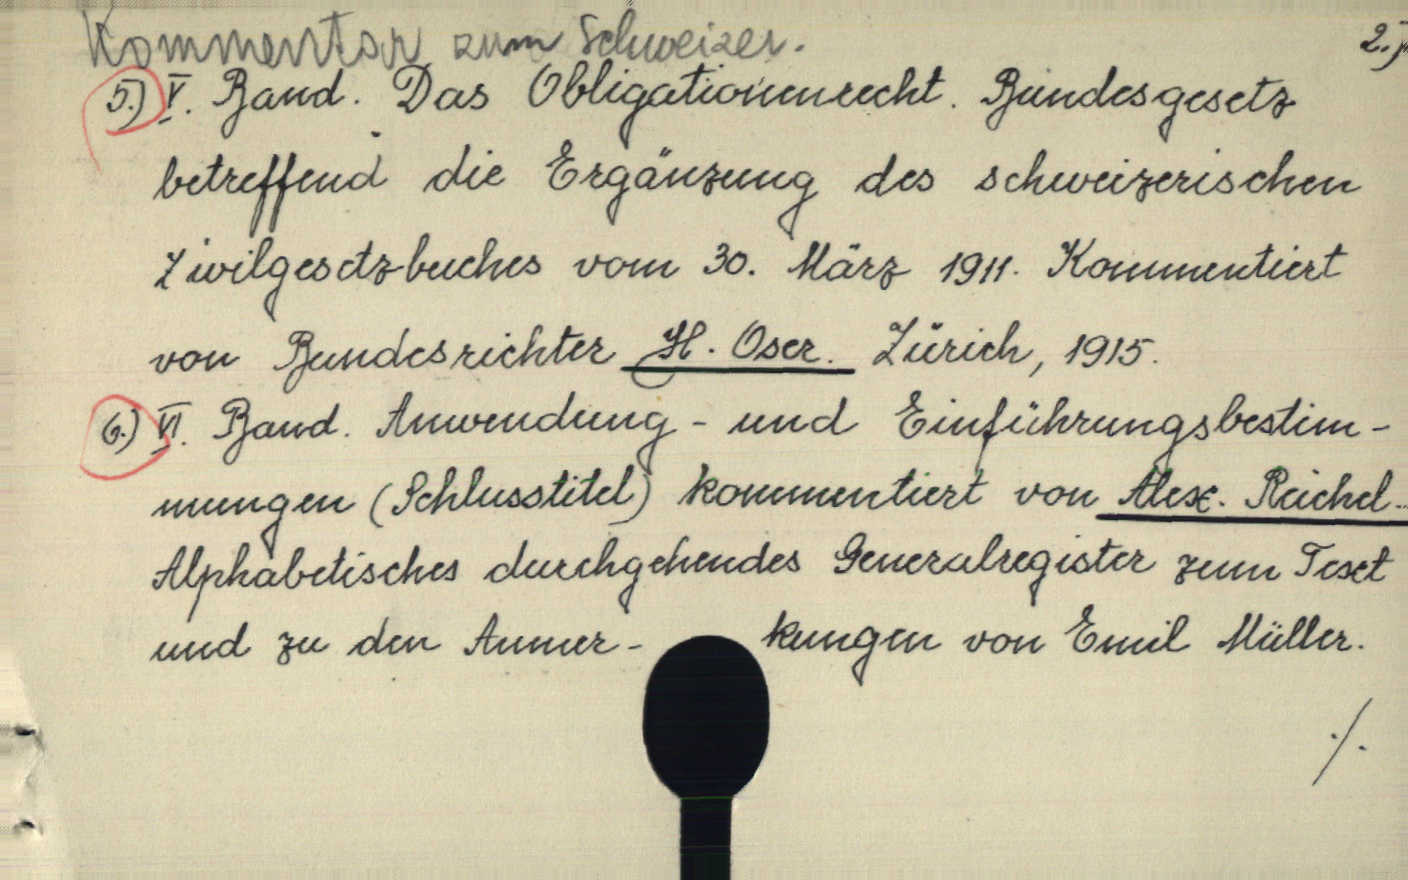 Kommentar zum Schweizer.
2.)
5.) V. Band. Das Obligationenrecht. Bundesgesetz
betreffend die Ergänzung des schweizerischen
Zivilgesetzbuches vom 30. März 1911. Kommentiert
von Bundesrichter H. Oser. Zürich, 1915.
6.) VI. Band. Anwendung- und Einführungsbestim-
mungen (Schlusstitel) kommentiert von Alex. Reichel.
Alphabetisches durchgehendes Generalregister zum Text
und zu den Anmer- kungen von Emil Müller.
./.